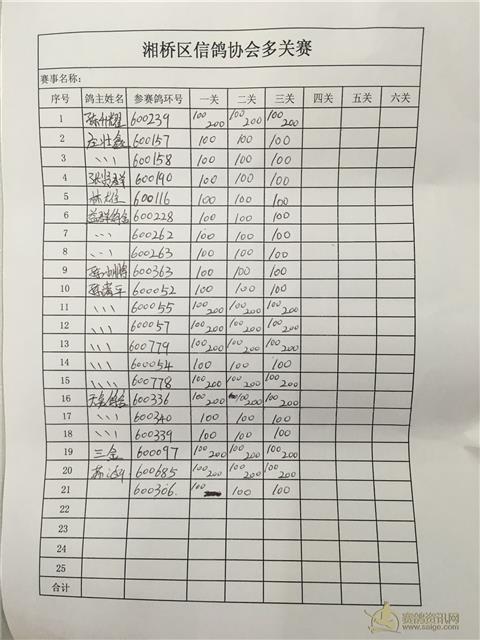 湘桥区信鸽协会多关赛
赛事名称:
序号 鸽主姓名 参赛鸽环号 一关 二关 三关 四关 五关 六关
1 600239 100 200 100 200 100 200
2 600157 100 100 100
3 、、、 600158 100 100 100
4 600190 100 100 100
5 600116 100 100 100
6 600228 100 100 100
7 、、、 600262 100 100 100
8 、、、 600263 100 100 100
9 600363 100 100 100
10 600052 100 100 100
11 、、、 600055 100 200 100 200 100 200
12 、、、 600057 100 200 100 200 100 200
13 、、、 600779 100 200 100 200 100 200
14 、、、 600054 100 100 100
15 、、、、 600778 100 200 100 200 100 200
16 600336 100 200 200 100 200
17 、、、 600340 100 100 100
18 、、、 600339 100 100 100
19 三金 600097 100 200 100 200 100 200
20 600685 100 200 100 200 100 200
21 600306. 100 100 100
22
23
24
25
合计
赛鸽资讯网
www.saige.com